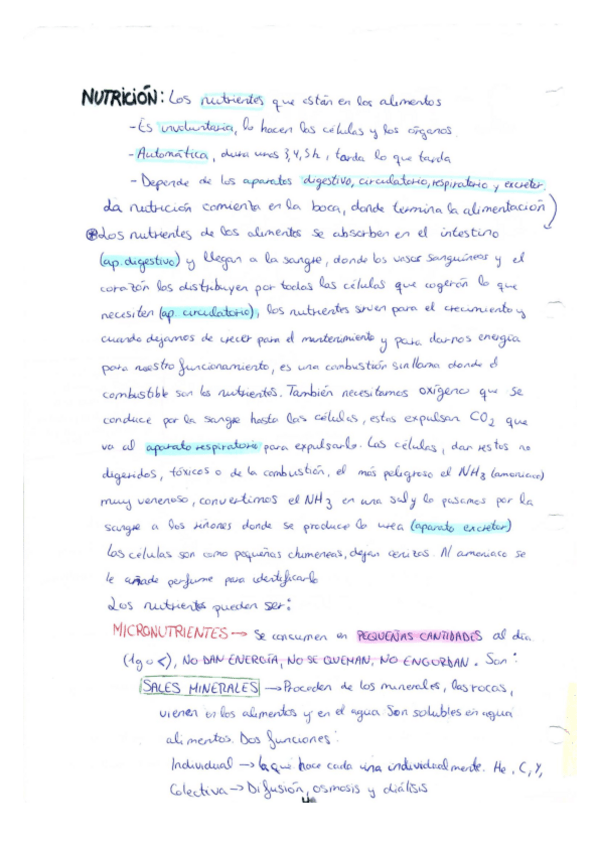 NUTRICIÓN: Los nutrientes que están en los alimentos
- Es involuntaria, lo hacen las células y los órganos.
- Automática, dura unos 3,4,5h, tarda lo que tarda
- Depende de los aparatos digestivo, circulatorio, respiratorio y excretor.
La nutrición comienza en la boca, donde termina la alimentación
Los nutrientes de los alimentos se absorben en el intestino
(ap. digestivo) y llegan a la sangre, donde los vasos sanguíneos y el
corazón los distribuyen por todas las células que cogerán lo que
necesiten (ap. circulatorio), los nutrientes sirven para el crecimiento y
cuando dejamos de crecer para el mantenimiento y para darnos energía
para nuestro funcionamiento, es una combustión sin llama donde el
combustible son los nutrientes. También necesitamos oxígeno que se
conduce por la sangre hasta las células, estas expulsan CO2 que
va al aparato respiratorio para expulsarlo. Las células, dan restos no
digeridos, tóxicos o de la combustión, el más peligroso el NH3 (amoniaco)
muy venenoso, convertimos el NH3 en una sal y lo pasamos por la
sangre a los riñones donde se produce la urea (aparato excretor)
Las células son como pequeñas chimeneas, dejan cenizas. Al amoniaco se
le añade perfume para identificarlo
Los nutrientes pueden ser:
MICRONUTRIENTES → Se consumen en PEQUEÑAS CANTIDADES al día
(1g o <), NO DAN ENERGÍA, NO SE QUEMAN, NO ENGORDAN. Son:
SALES MINERALES → Proceden de los minerales, las rocas,
vienen en los alimentos y en el agua Son solubles en agua
alimentos. Dos funciones:
Individual → la que hace cada una individualmente. He, C, Y,
Colectiva → Difusión, osmosis y diálisis